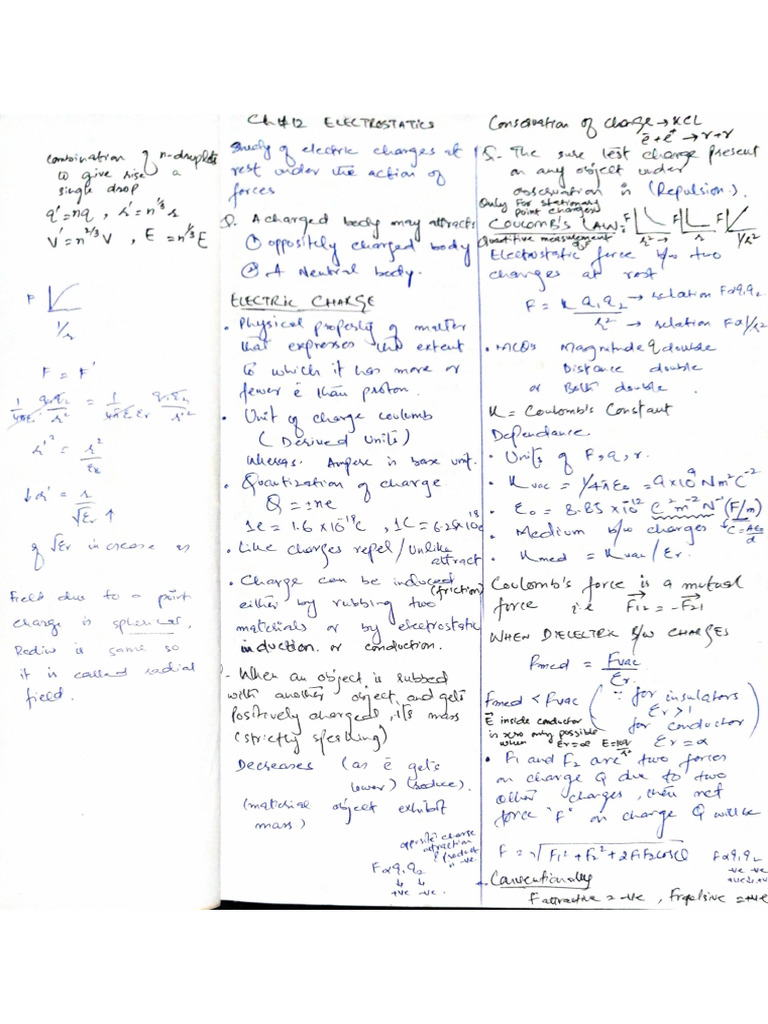 combination of n-droplets
to give rise a
single drop
q' = nq , r' = n^1/3 r
V' = n^2/3 V , E = n^1/3 E
F
1/r
F = F'
1/4πε. q1q2/r² = 1/4πε.εr q1q2/r'²
r'² = r²/εr
↓r' = r/√εr ↑
if √εr increase as
Field due to a point
charge is spherical,
Radius is same so
it is called radial
field.
Ch#12 ELECTROSTATICS
Study of electric charges at
rest under the action of
forces
Q. A charged body may attract:
① oppositely charged body
② A Neutral body.
ELECTRIC CHARGE
• Physical property of matter
that expresses the extent
to which it has more or
fewer ē than proton.
• Unit of charge coulomb
(Derived Units)
whereas. Ampere is base unit.
• Quantization of charge
Q = ±ne
1e = 1.6 × 10^-19 C , 1C = 6.25 × 10^18 e
• Like charges repel / Unlike
attract
• Charge can be induced
(friction)
either by rubbing two
materials or by electrostatic
induction. or conduction.
- When an object is rubbed
with another object, and gets
positively charged, its mass
(strictly speaking)
Decreases (as ē gets
lower) (reduce).
(material object exhibit
mass)
opposite charge
attraction
& product
is -ve.
F α q1 q2
+ve -ve.
Conservation of charge → KCL
ē + e⁺ → r + r
Q. The sure test charge present
on any object under
observation is (Repulsion.).
Only For stationary
point charges
COULOMB'S LAW:
F r² → F r F 1/r²
Quantitive measurement
Electrostatic force b/w two
charges at rest
F = K q1 q2 / r² → relation F α q1q2
→ relation F α 1/r²
• MCQs Magnitude q double
Distance double
or Both double
K = Coulomb's Constant
Dependance
• Units of F, q, r.
• Kvac = 1/4πε0 = 9×10^9 Nm²C^-2
• ε0 = 8.85 × 10^-12 C²m^-2N^-1 (F/m)
C = Aε0/d
• Medium b/w charges
• Kmed = Kvac / εr.
Coulomb's force is a mutual
force i.e F12 = -F21
WHEN DIELECTRIC B/W CHARGES
Fmed = Fvac/εr.
Fmed < Fvac (∵ for insulators
εr > 1
for conductor
εr = α)
E inside conductor
is zero only possible
when εr = α
• F1 and F2 are two forces
on charge Q due to two
other charges, then net
force "F" on charge Q will be
F = √F1² + F2² + 2F1F2cosθ
F α q1 q2
-ve -ve
+ve +ve
Conventionally
F attractive = -ve , F repulsive = +ve